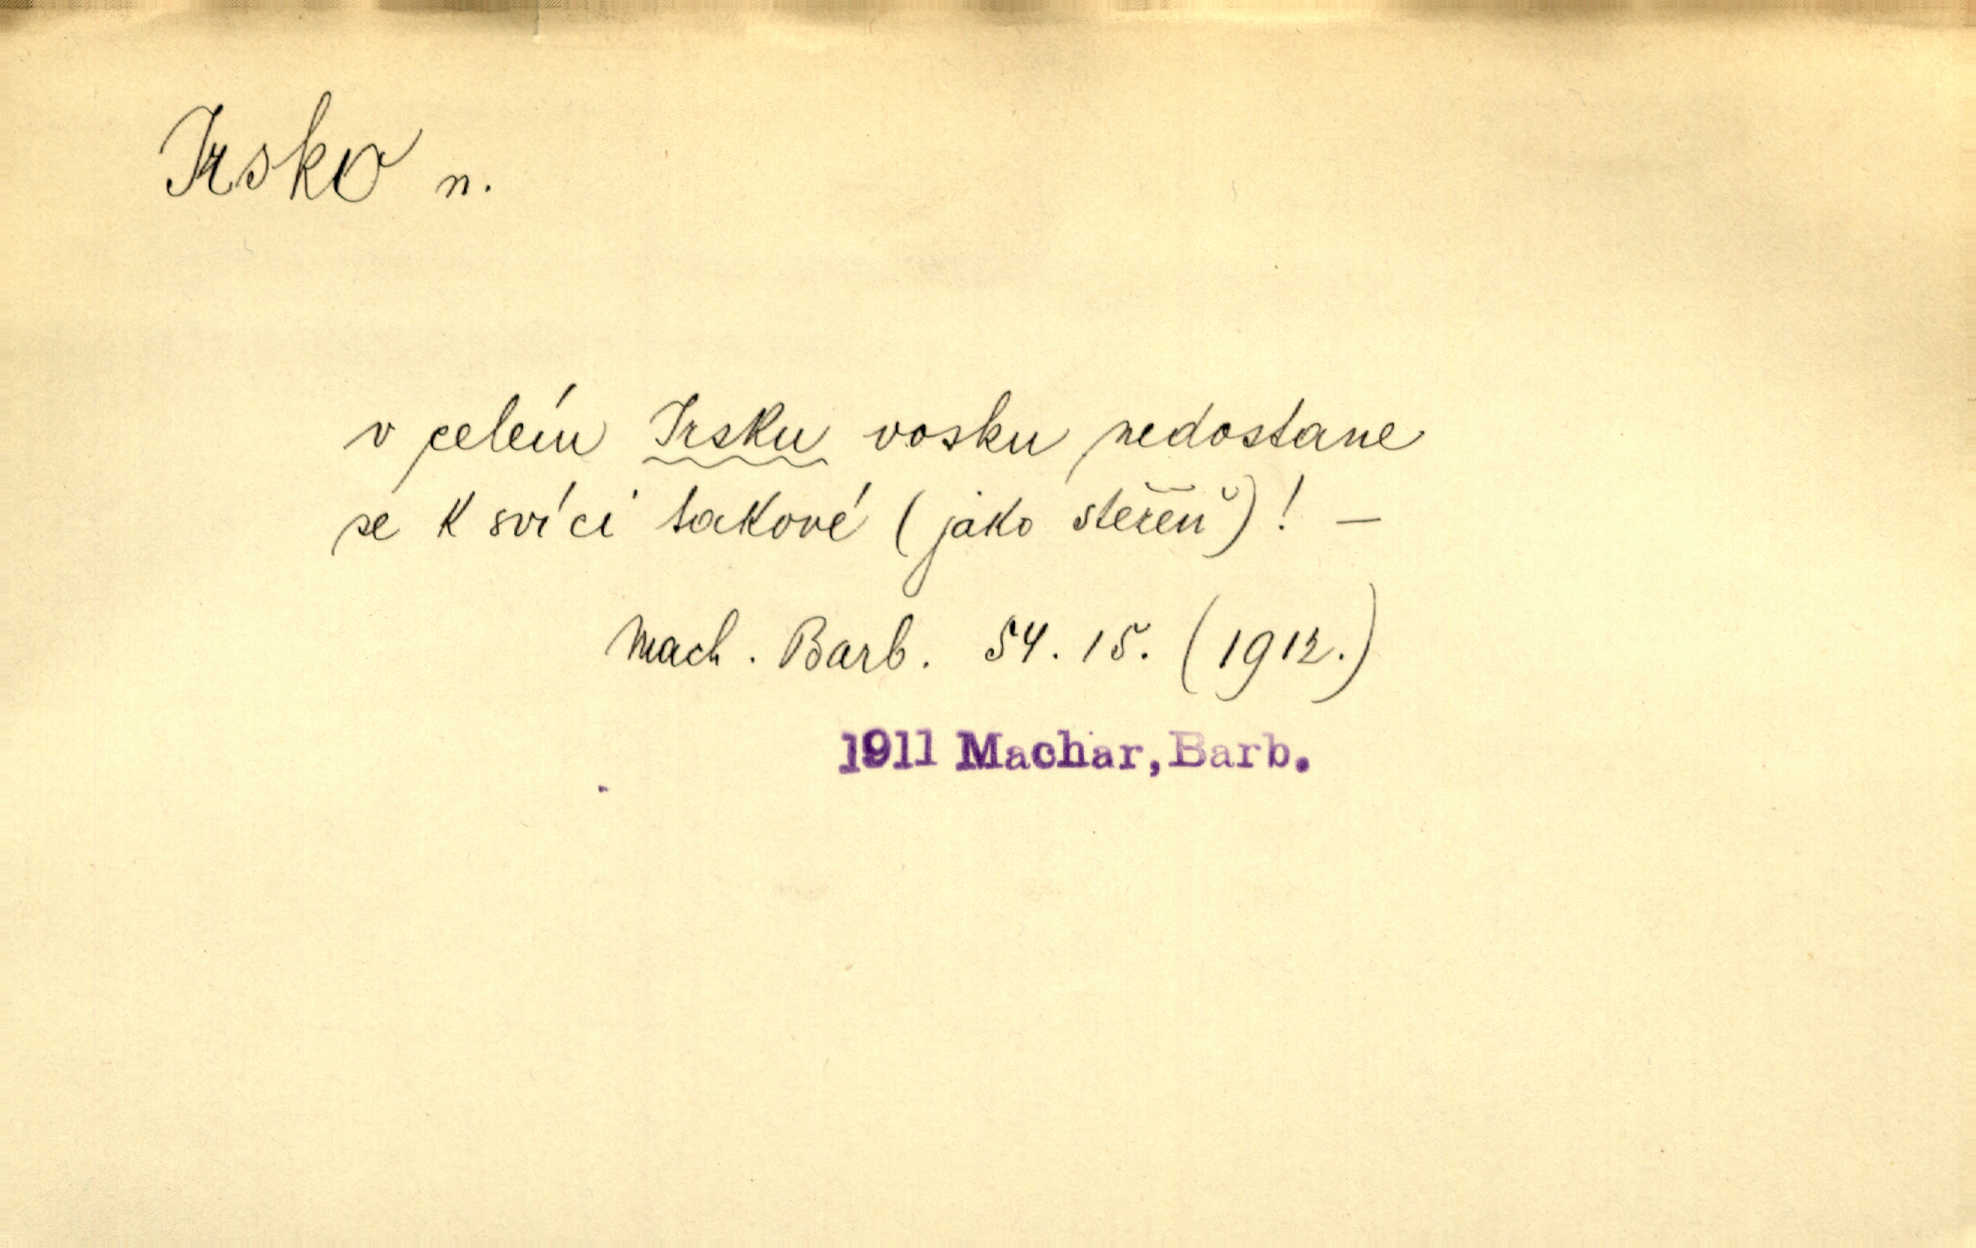 Irsko n.
v celém Irsku vosku nedostane
se k svíci takové (jako stěžeň)! —
Mach. Barb. 54. 15. (1912.)
1911 Machar, Barb.